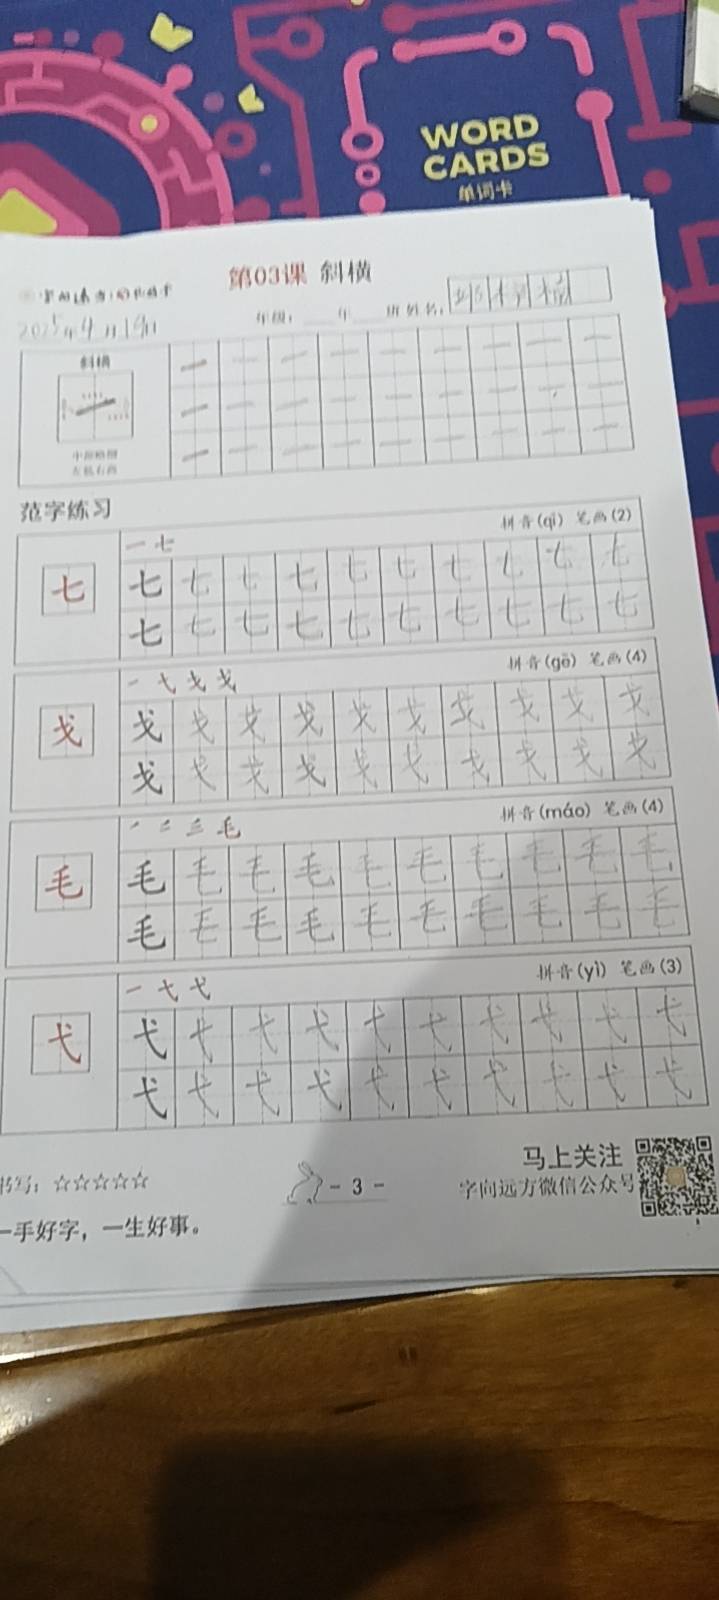 WORD
CARDS
单词卡
第03课 斜横
2025年4月19日
年级： 年 班 姓名：
斜横
中部略细
左低右高
范字练习
拼音(qī) 笔画(2)
一 七
七 七 七 七 七 七 七 七 七 七 七
七 七 七 七 七 七 七 七 七 七
拼音(gē) 笔画(4)
戈 戈 戈 戈 戈 戈 戈 戈 戈 戈 戈
戈 戈 戈 戈 戈 戈 戈 戈 戈 戈
拼音(máo) 笔画(4)
毛 毛 毛 毛 毛 毛 毛 毛 毛 毛 毛
毛 毛 毛 毛 毛 毛 毛 毛 毛 毛
拼音(yì) 笔画(3)
弋 弋 弋 弋 弋 弋 弋 弋 弋 弋 弋
弋 弋 弋 弋 弋 弋 弋 弋 弋 弋
书写：☆☆☆☆☆
- 3 -
马上关注
字向远方微信公众号
一手好字，一生好事。